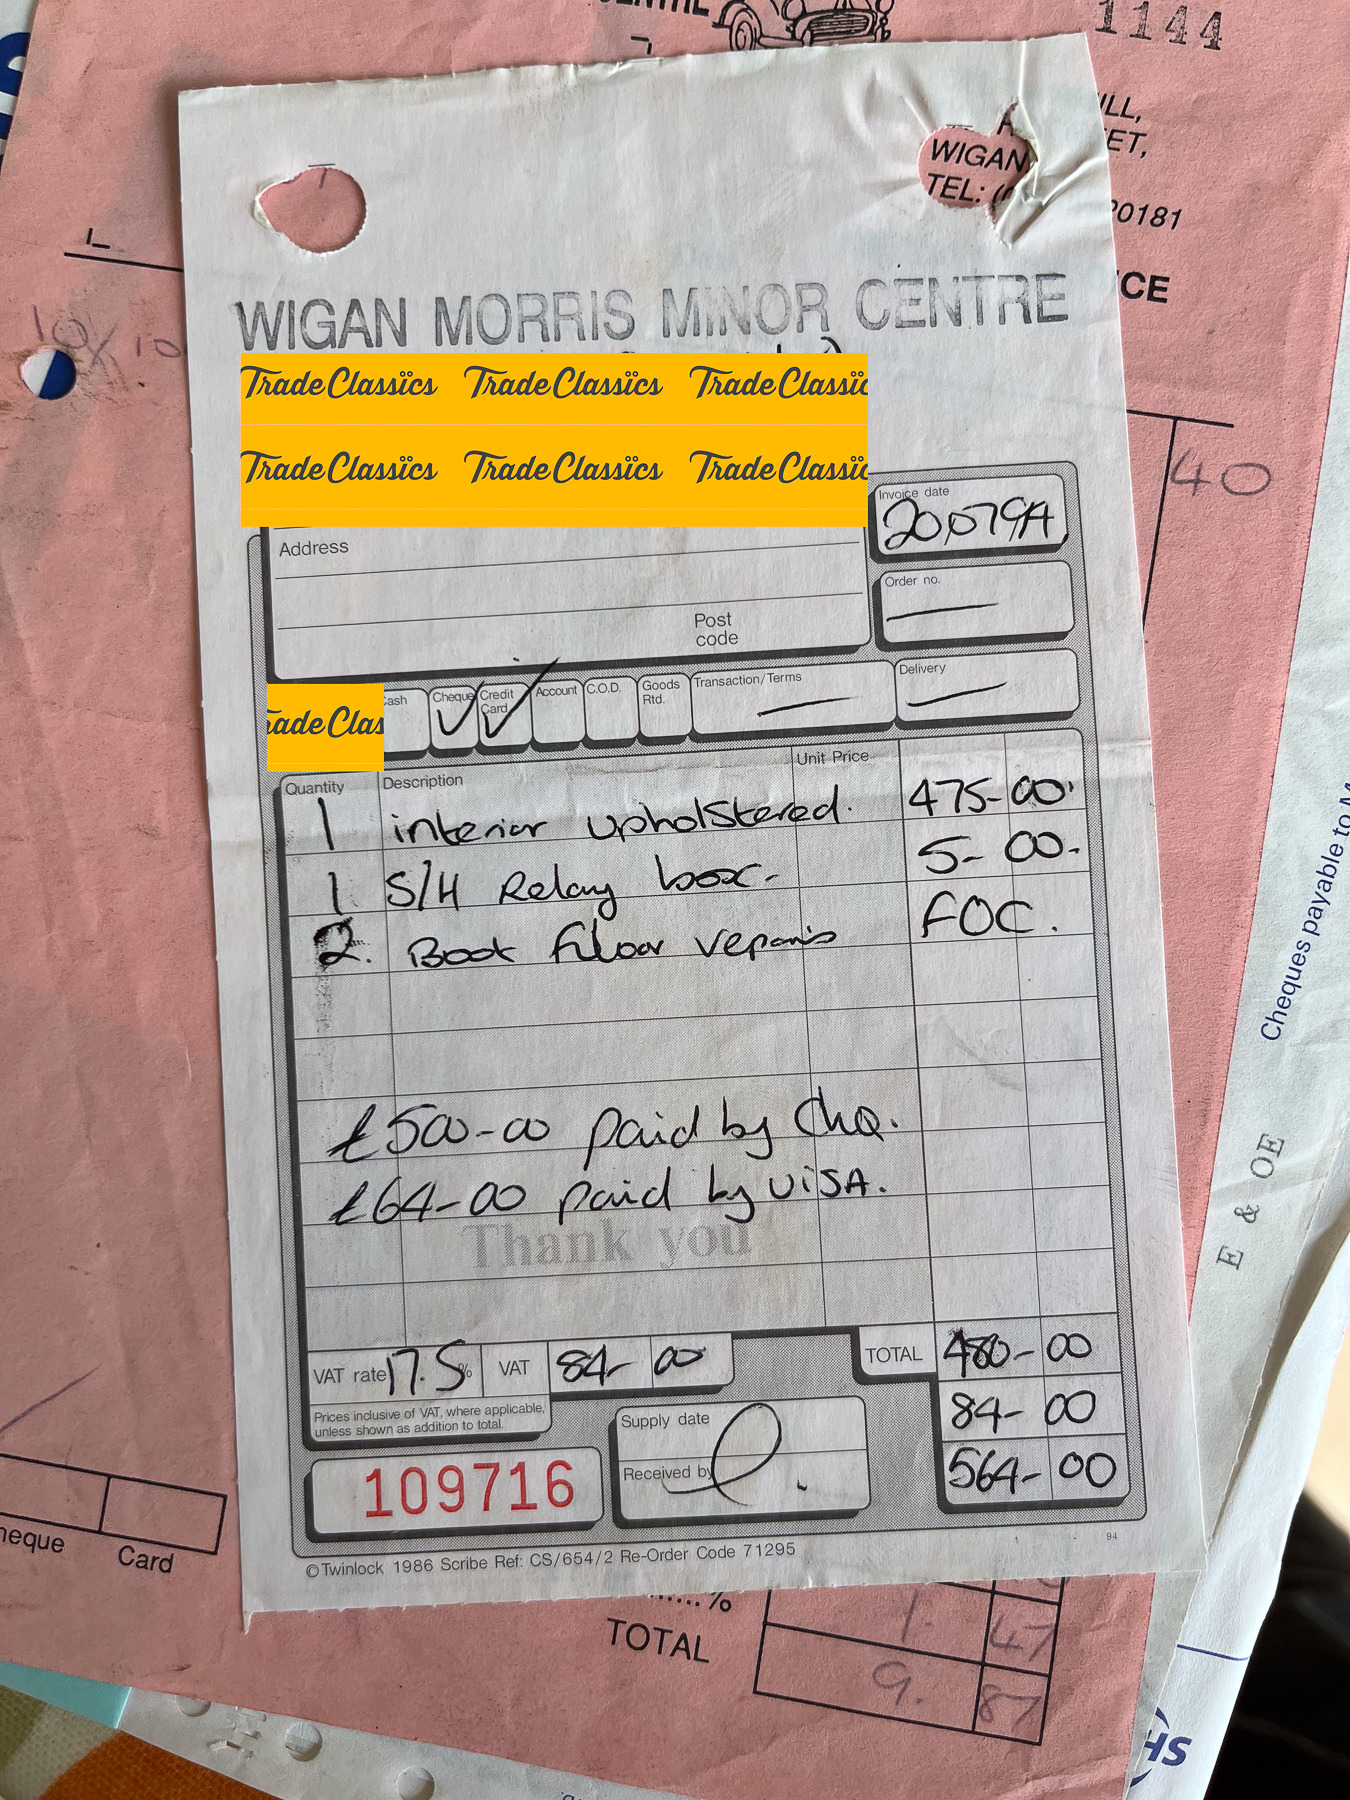 1144
WIGAN
TEL:
20181
WIGAN MORRIS MINOR CENTRE
TradeClassïcs TradeClassïcs TradeClassïc
TradeClassïcs TradeClassïcs TradeClassïc
Invoice date
Address
Order no.
Post
code
40
Cheque
Credit
Card
Account
C.O.D.
Goods
Rtd.
Transaction/Terms
Delivery
rade Clas
Quantity Description Unit Price
1 interior upholstered. 475-00.
1 S/H Relay box. 5-00.
2. Boot filoor repairs FOC.
£500-00 paid by Chq.
£64-00 paid by ViSA.
Thank you
VAT rate 17.5% VAT 84-00 TOTAL 480-00
84-00
564-00
Prices inclusive of VAT, where applicable,
unless shown as addition to total.
Supply date
Received by
109716
©Twinlock 1986 Scribe Ref: CS/654/2 Re-Order Code 71295
94
Card
%
TOTAL
1. 47
9. 87
Cheques payable to
E & OE